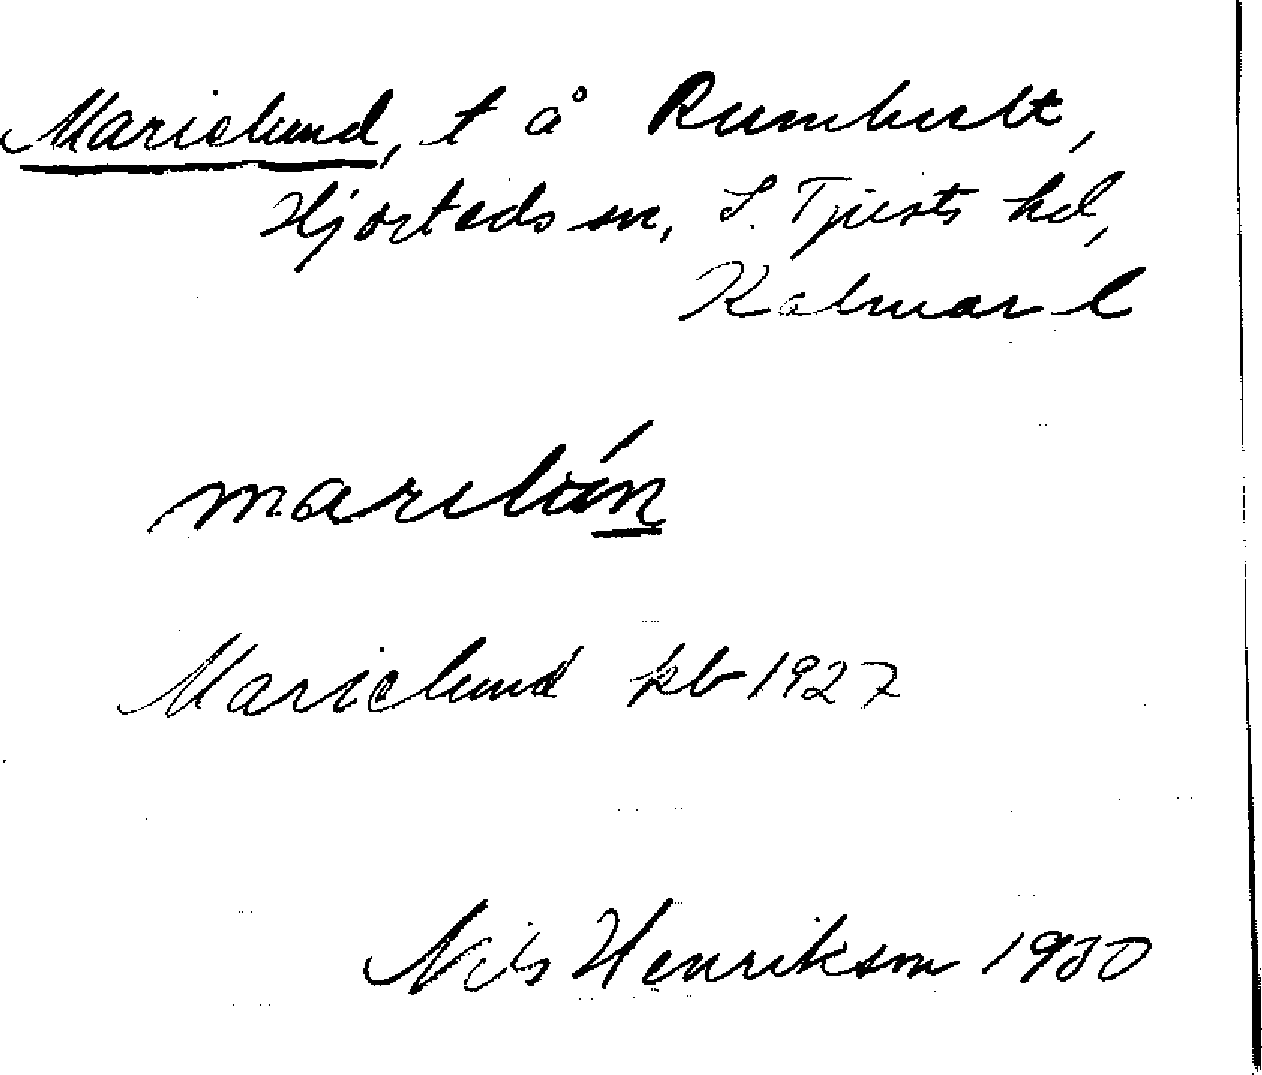 Marielund, t å Rumhult,
Hjorteds sn, S. Tjusts hd,
Kalmar l
marilún
Marielund kb 1927
Nils Henrikson 1930